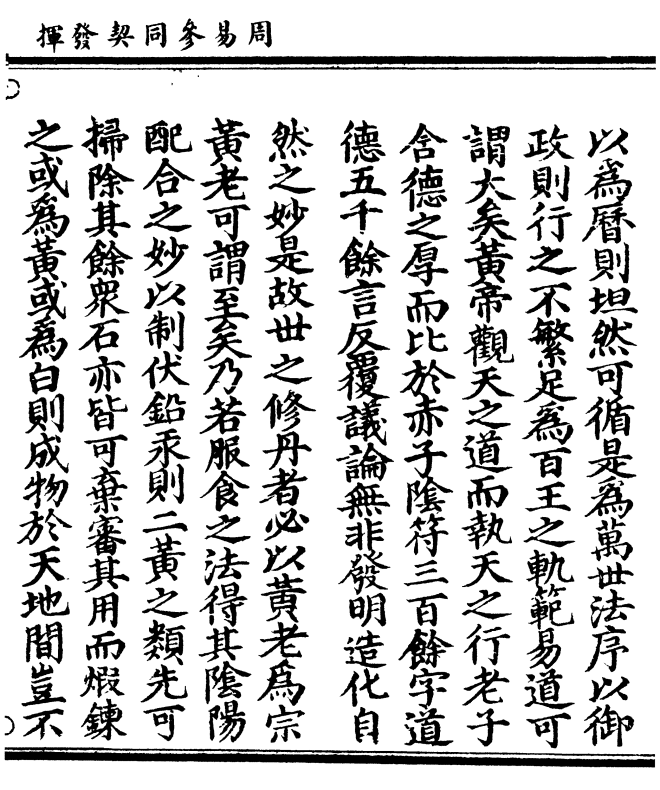 周易參同契發揮
以為曆則坦然可循是為萬世法序以御
政則行之不繁足為百王之軌範易道可
謂大矣黃帝觀天之道而執天之行老子
含德之厚而比於赤子陰符三百餘字道
德五千餘言反覆議論無非發明造化自
然之妙是故世之修丹者必以黃老為宗
黃老可謂至矣乃若服食之法得其陰陽
配合之妙以制伏鉛汞則二黃之類先可
掃除其餘衆石亦皆可棄審其用而煆鍊
之或為黃或為白則成物於天地間豈不